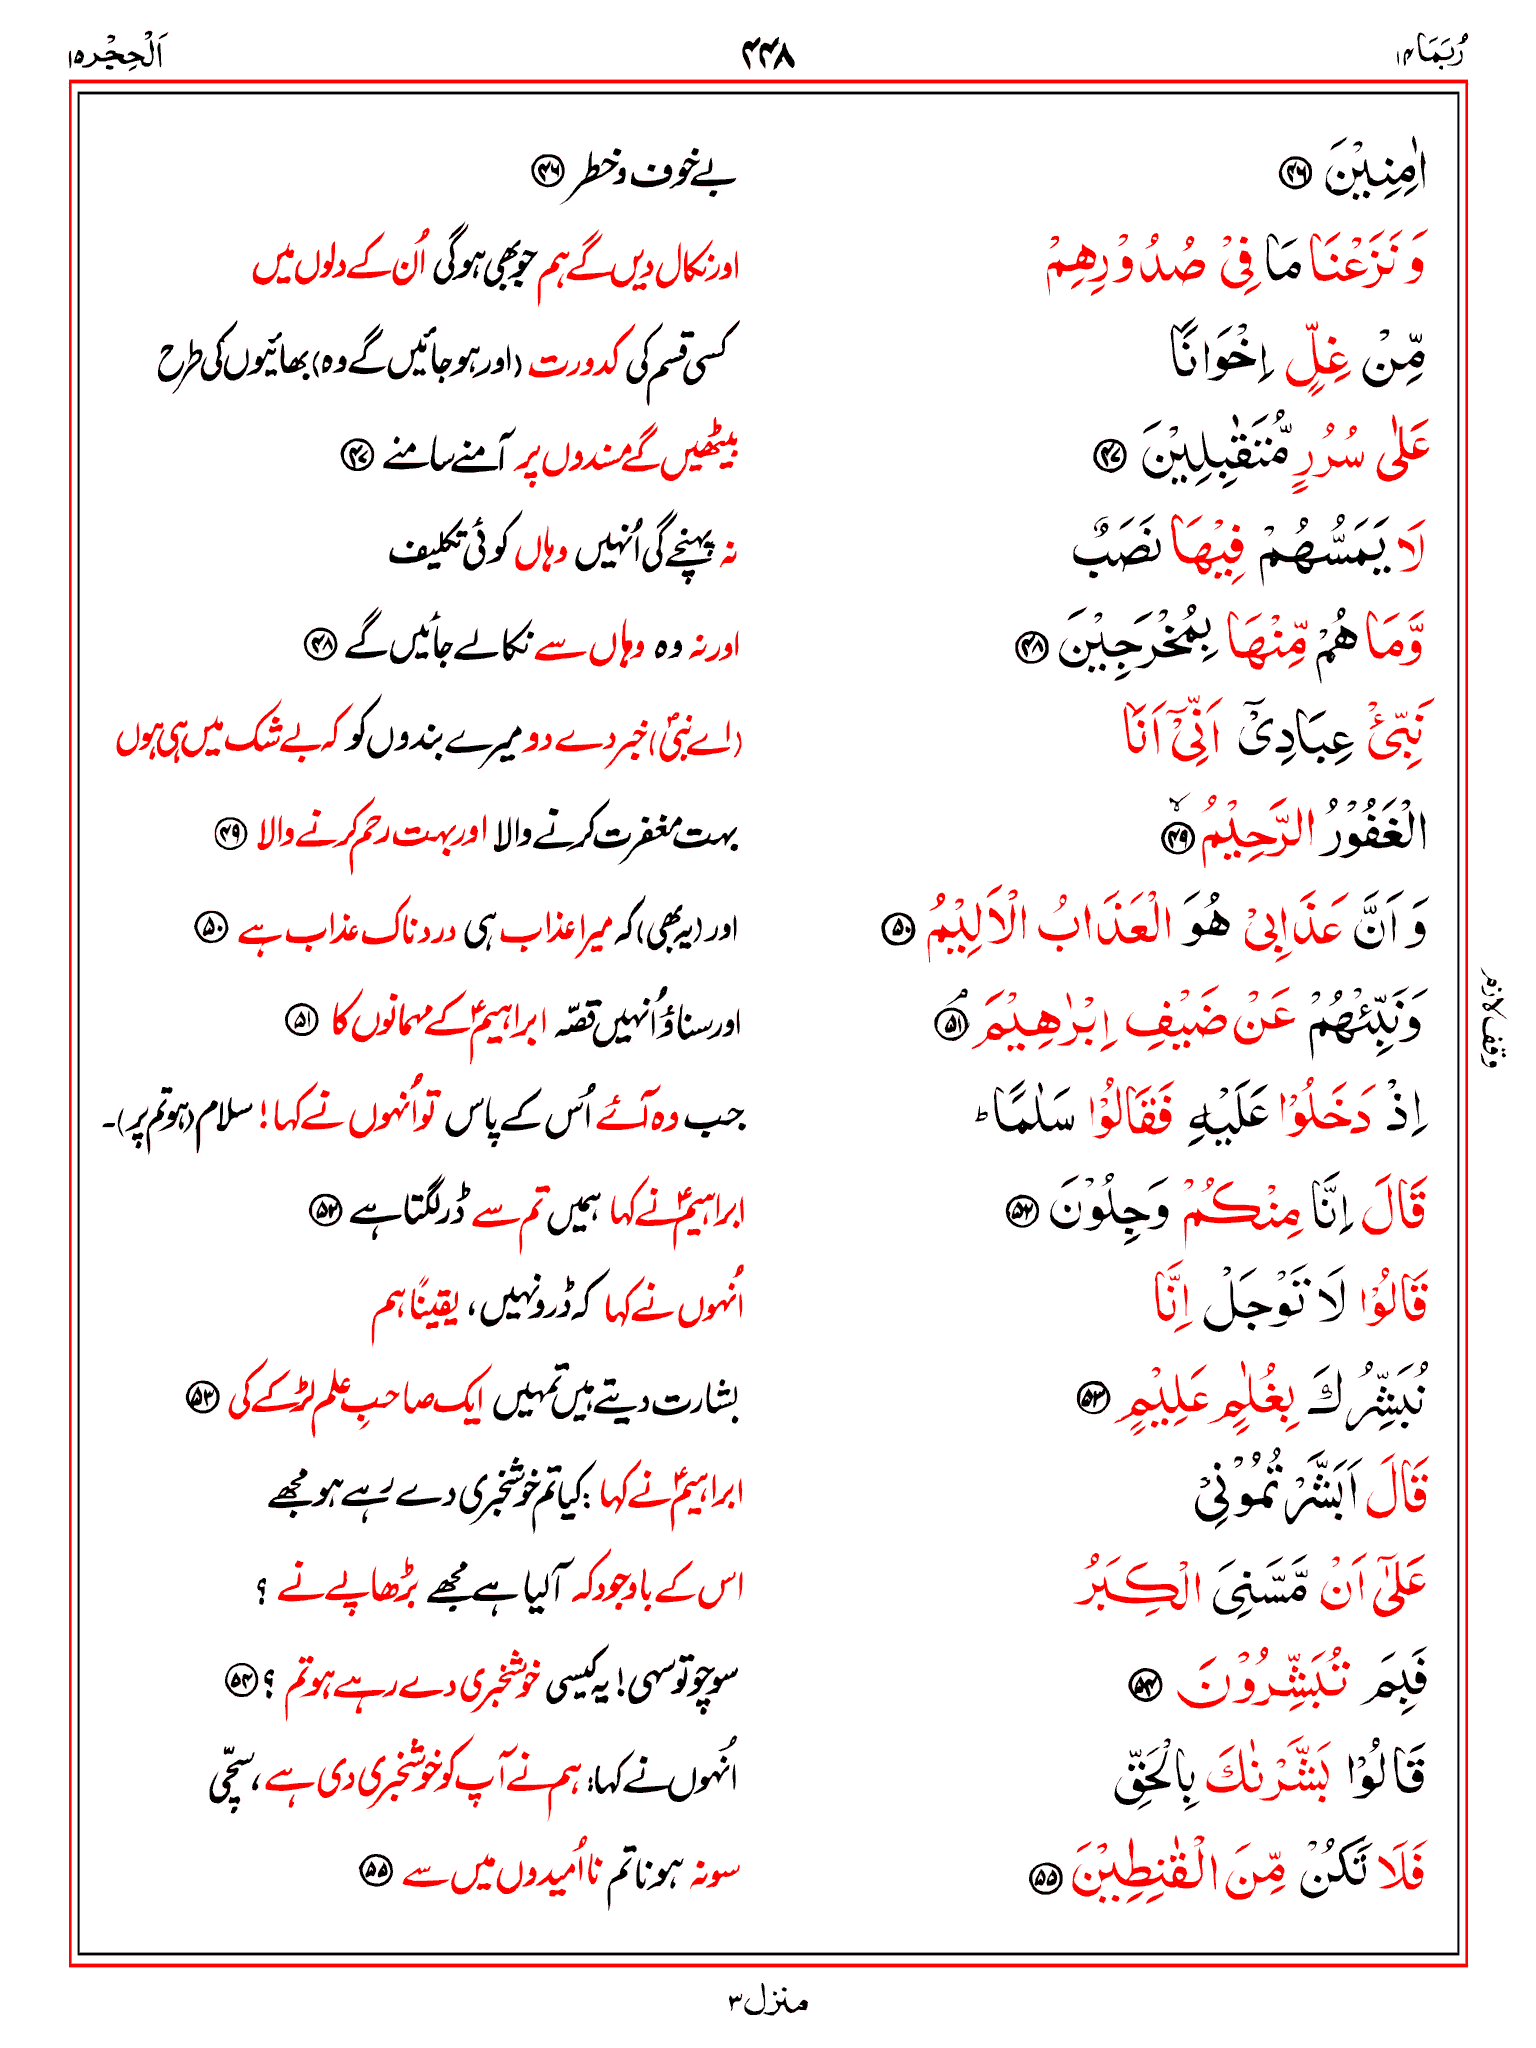 رُبَمَا ۱۴ ۴۴۸ اَلْحِجْر ۱۵
اٰمِنِيْنَ ۴۶ بے خوف و خطر ۴۶
وَ نَزَعْنَا مَا فِيْ صُدُوْرِهِمْ اور نکال دیں گے ہم جو بھی ہوگی اُن کے دلوں میں
مِّنْ غِلٍّ اِخْوَانًا کسی قسم کی کدورت (اور ہو جائیں گے وہ) بھائیوں کی طرح
عَلٰى سُرُرٍ مُّتَقٰبِلِيْنَ ۴۷ بیٹھیں گے مسندوں پر آمنے سامنے ۴۷
لَا يَمَسُّهُمْ فِيْهَا نَصَبٌ نہ پہنچے گی اُنہیں وہاں کوئی تکلیف
وَّمَا هُمْ مِّنْهَا بِمُخْرَجِيْنَ ۴۸ اور نہ وہ وہاں سے نکالے جائیں گے ۴۸
نَبِّئْ عِبَادِيْٓ اَنِّيْٓ اَنَا (اے نبیؐ) خبر دے دو میرے بندوں کو کہ بے شک میں ہی ہوں
الْغَفُوْرُ الرَّحِيْمُ ۙ ۴۹ بہت مغفرت کرنے والا اور بہت رحم کرنے والا ۴۹
وَ اَنَّ عَذَابِيْ هُوَ الْعَذَابُ الْاَلِيْمُ ۵۰ اور (یہ بھی) کہ میرا عذاب ہی دردناک عذاب ہے ۵۰
وَنَبِّئْهُمْ عَنْ ضَيْفِ اِبْرٰهِيْمَ ۘ ۵۱ اور سناؤ اُنہیں قصّہ ابراہیمؑ کے مہمانوں کا ۵۱
وقف لازم
اِذْ دَخَلُوْا عَلَيْهِ فَقَالُوْا سَلٰمًا ؕ جب وہ آئے اُس کے پاس تو اُنہوں نے کہا! سلام (ہو تم پر)۔
قَالَ اِنَّا مِنْكُمْ وَجِلُوْنَ ۵۲ ابراہیمؑ نے کہا ہمیں تم سے ڈر لگتا ہے ۵۲
قَالُوْا لَا تَوْجَلْ اِنَّا اُنہوں نے کہا کہ ڈرو نہیں، یقیناً ہم
نُبَشِّرُكَ بِغُلٰمٍ عَلِيْمٍ ۵۳ بشارت دیتے ہیں تمہیں ایک صاحبِ علم لڑکے کی ۵۳
قَالَ اَبَشَّرْتُمُوْنِيْ ابراہیمؑ نے کہا: کیا تم خوشخبری دے رہے ہو مجھے
عَلٰٓى اَنْ مَّسَّنِيَ الْكِبَرُ اس کے باوجود کہ آ لیا ہے مجھے بڑھاپے نے ؟
فَبِمَ تُبَشِّرُوْنَ ۵۴ سوچو تو سہی! یہ کیسی خوشخبری دے رہے ہو تم ؟ ۵۴
قَالُوْا بَشَّرْنٰكَ بِالْحَقِّ انہوں نے کہا: ہم نے آپ کو خوشخبری دی ہے، سچّی
فَلَا تَكُنْ مِّنَ الْقٰنِطِيْنَ ۵۵ سو نہ ہونا تم نا اُمیدوں میں سے ۵۵
منزل ۳